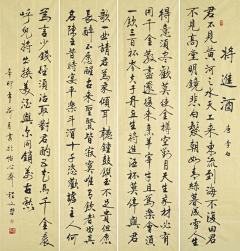 将進酒
唐 李白
君不見黄河之水天上来奔流到海不復回君
不見高堂明鏡悲白髮朝如青絲暮成雪人生
得意須盡歡莫使金樽空對月天生我材必有
用千金散盡還復来烹羊宰牛且為樂會須
一飲三百杯岑夫子丹丘生将進酒杯莫停與君
歌一曲請君為我傾耳聽鐘鼓饌玉不足貴但願
長醉不願醒古来聖賢皆寂寞惟有飲者留其
名陳王昔時宴平樂斗酒十千恣歡謔主人何
為言少錢徑須沽取對君酌五花馬千金裘
呼兒将出换美酒與爾同銷萬古愁
辛卯年